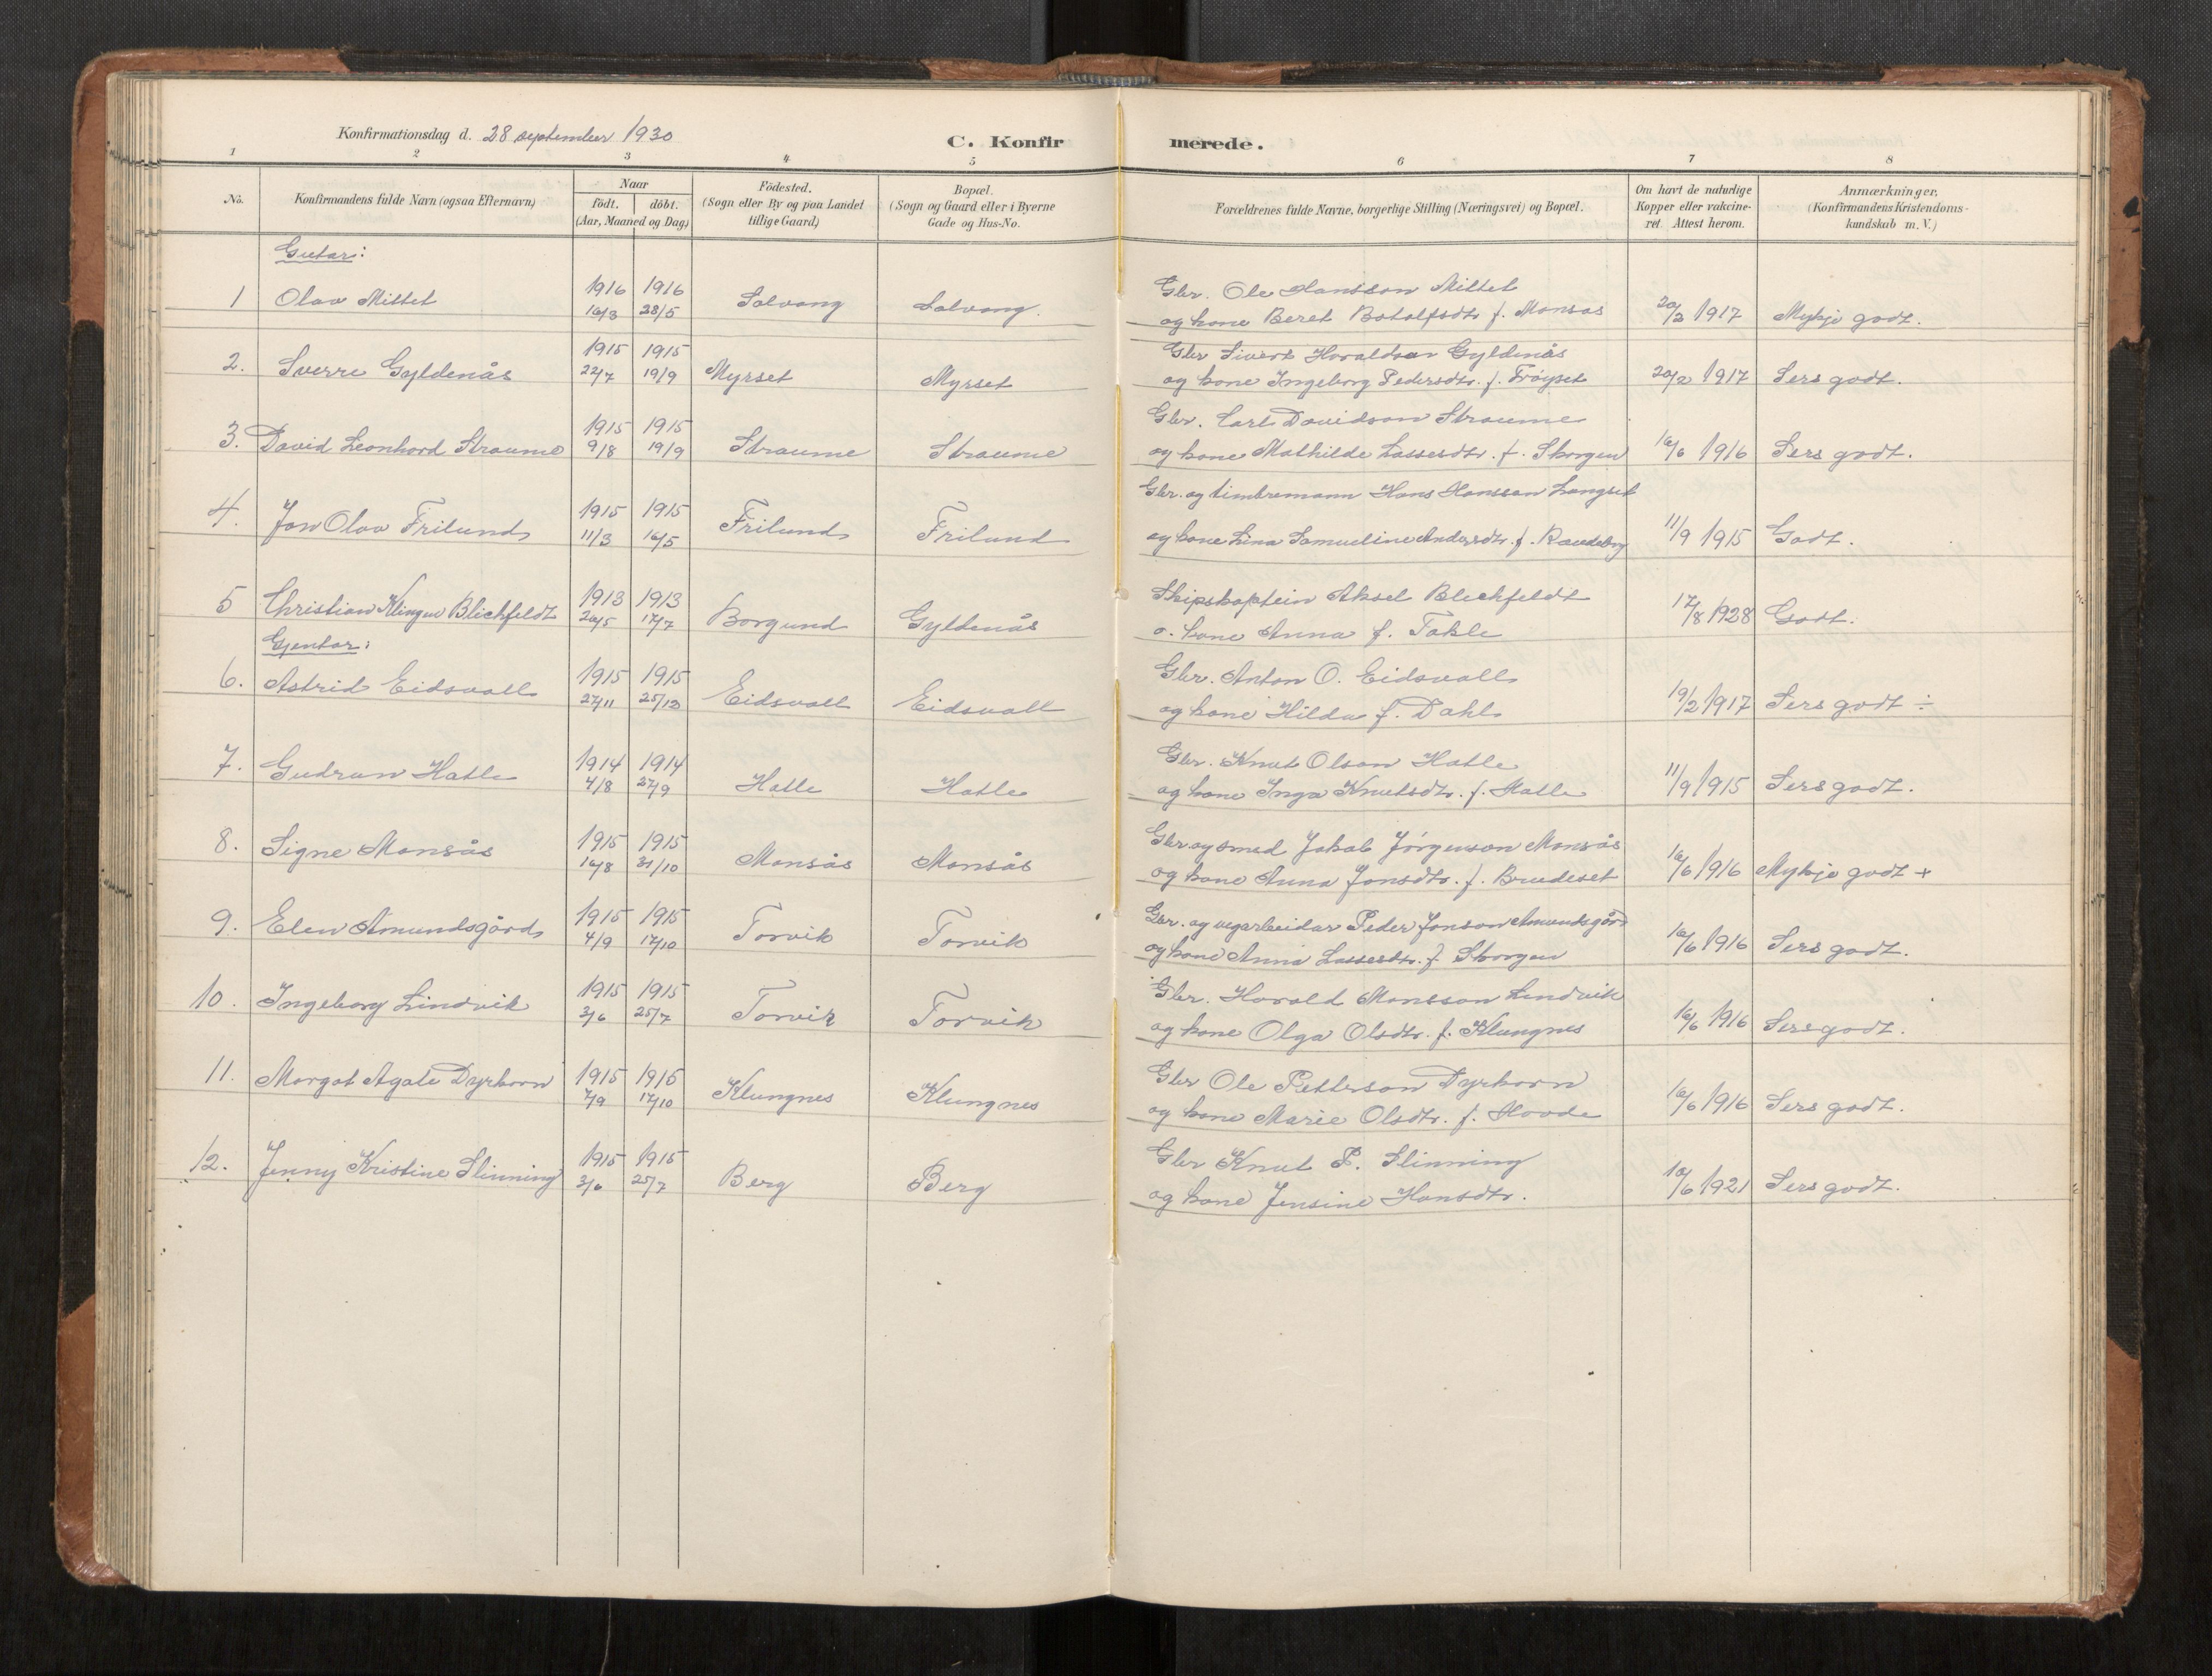 Konfirmationsdag d. 28 september 1930
C. Konfirmerede.
1 2 3 4 5 6 7 8
No. Konfirmandens fulde Navn (ogsaa Efternavn) Naar födt. döbt. (Aar, Maaned og Dag) Födested. (Sogn eller By og paa Landet tillige Gaard) Bopæl. (Sogn og Gaard eller i Byerne Gade og Hus-No. Forældrenes fulde Navne, borgerlige Stilling (Næringsvei) og Bopæl. Om havt de naturlige Kopper eller vakcineret. Attest herom. Anmærkninger, (Konfirmandens Kristendomskundskab m. V.)
Gutar:
1 Olav Mittet 1916 16/3 1916 28/5 Solvang Solvang. Gbr. Ole Hansson Mittet
og kone Beret Botolfsdtr. f. Monsås 20/2 1917 Mykje godt.
2. Sverre Gyldenås 1915 22/7 1915 19/9 Myrset Myrset Gbr Sivert Haraldson Gyldenås
og kone Ingeborg Pedersdtr. f. Frøyset 20/2 1917 Sers godt.
3. David Leonhard Straume 1915 9/8 1915 19/9 Straume Straume Gbr. Carl Davidson Straume
og kone Mathilde Lassesdtr. f. Skorgen 16/6 1916 Sers godt.
4. Jon Olav Frilund 1915 11/3 1915 16/5 Frilund Frilund Gbr. og timbremann Hans Hansson Langset
og kone Lina Samueline Andersdtr. f. 11/9 1915 Godt.
5 Christian Klingen Blichfeldt 1913 20/5 1913 17/7 Borgund Gyldenås Skipskaptein Aksel Blichfeldt
o. kone Anna f. Takle 17/8 1928 Godt.
Gjentar:
6. Astrid Eidsvoll 1915 27/11 1915 25/12 Eidsvoll Eidsvoll Gbr. Anton O. Eidsvoll
og kone Hilda f. Dahl 19/2 1917 Sers godt ÷
7. Gudrun Hatle 1914 4/8 1914 27/9 Hatle Hatle Gbr. Knut Olson Hatle
og kone Inga Knutsdtr. f. Hatle 11/9 1915 Sers godt.
8. Signe Monsås 1915 16/8 1915 31/10 Monsås Monsås Gbr og smed Jakob Jørgenson Monsås
og kone Anna Jonsdtr. f. Brudeset 16/6 1916 Mykje godt +
9. Elen Amundsgård 1915 4/9 1915 17/10 Torvik Torvik Gbr. og vegarbeidar Peder Jonson Amundsgård
og kone Anna Lassesdtr. f. Skorgen 16/6 1916 Sers godt.
10. Ingeborg Lindvik 1915 3/6 1915 25/7 Torvik Torvik Gbr. Harald Monsson Lindvik
og kone Olga Olsdtr. f. Klungnes 16/6 1916 Sers godt.
11. Margot Agate Dyrkorn 1915 7/9 1915 17/10 Klungnes Klungnes Gbr Ole Petterson Dyrkorn
og kone Marie Olsdtr. f. Hovde 16/6 1916 Sers godt.
12. Jenny Kristine Slinning 1915 3/6 1915 25/7 Berg Berg Gbr Knut P. Slinning
og kone Jensine Hansdtr. 10/6 1921 Sers godt.